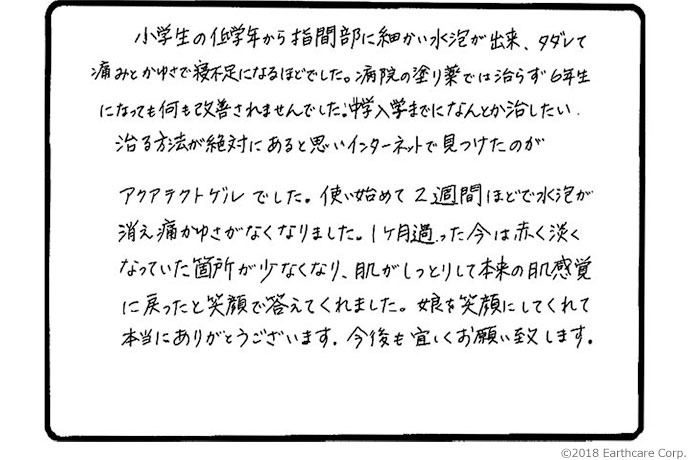 小学生の低学年から指間部に細かい水泡が出来、タダレて
痛みとかゆさで寝不足になるほどでした。病院の塗り薬では治らず6年生
になっても何も改善されませんでした。中学入学までになんとか治したい.
治る方法が絶対にあると思いインターネットで見つけたのが
アクアテクトゲルでした。使い始めて2週間ほどで水泡が
消え痛かゆさがなくなりました。1ヶ月過った今は赤く淡く
なっていた箇所が少なくなり、肌がしっとりして本来の肌感覚
に戻ったと笑顔で答えてくれました。娘を笑顔にしてくれて
本当にありがとうございます。今後も宜しくお願い致します。
©2018 Earthcare Corp.